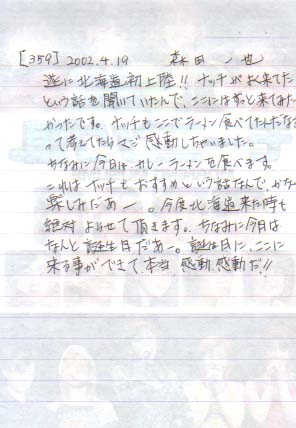 [359] 2002.4.19 森田 一也
遂に北海道初上陸!! ナッチが昔来てた
という話を聞いていたんで、ここにはずっと来てみた
かったです。ナッチもここでラーメン食べてたんだな
って考えてたらマジ感動しちゃいました。
ちなみに今日は カレーラーメンを食べます。
これはナッチもおすすめという話なんで、かなり
楽しみだあー。今度北海道来た時も
絶対 よらせて頂きます。ちなみに今日は
なんと誕生日だあー。誕生日に、ここに
来る事ができて、本当 感動、感動だ!!